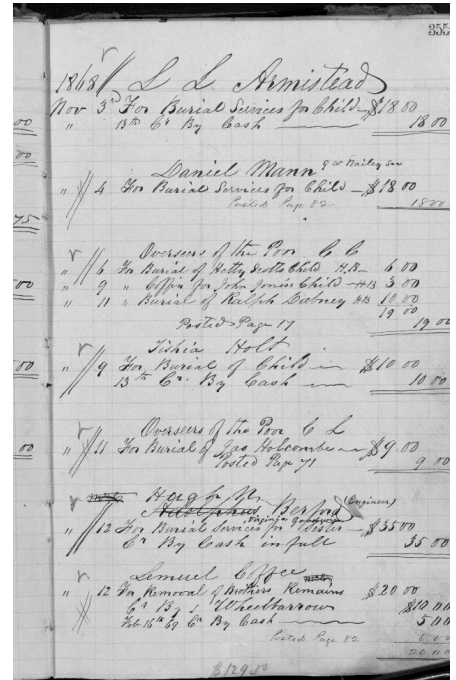 355
1868 L L Armistead
Nov 3rd For Burial Services for Child $18 00
" 13th Cr By Cash 18 00
Daniel Mann
" 4 For Burial Services for Child $18 00
Posted Page 82 18 00
Overseers of the Poor C C
" 6 For Burial of Hetty Scotts Child HB 6 00
" 9 " Coffin for John Jones Child HB 3 00
" 11 " Burial of Ralph Dabney HB 10 00
19 00
Posted Page 17 19 00
Tishia Holt
" 9 For Burial of Child $10 00
13th Cr By Cash 10 00
Overseers of the Poor C L
" 11 For Burial of Jas Holcombe $9 00
Posted Page 71 9 00
Hugh N.
Adolphus Berford (Engineer)
" 12 For Burial Services for Sister $35 00
Cr By Cash in full 35 00
Lemuel Coffee
" 12 For Removal of Brothers Remains $20 00
Cr By 1 Wheelbarrow $10 00
Feb 16th 69 Cr By Cash 5 00
Posted Page 82 5 00
20 00
$129.00
00
00
75
00
00